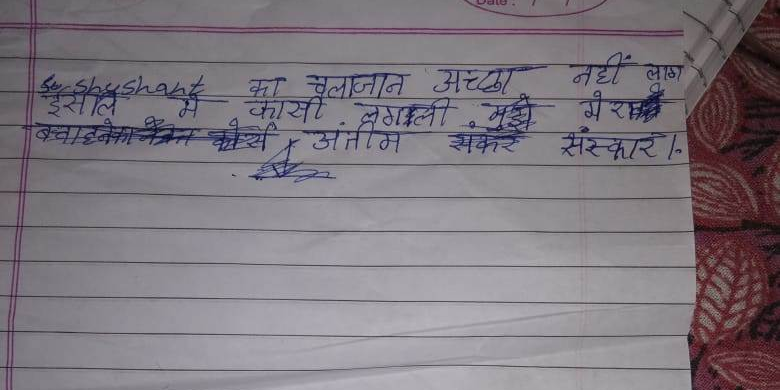 Date: / /
Shushant का चलाजान अच्छा नहीं लाग
इसलि मे फासी लगाली मुझे मेरा
अंतीम संस्कार ।